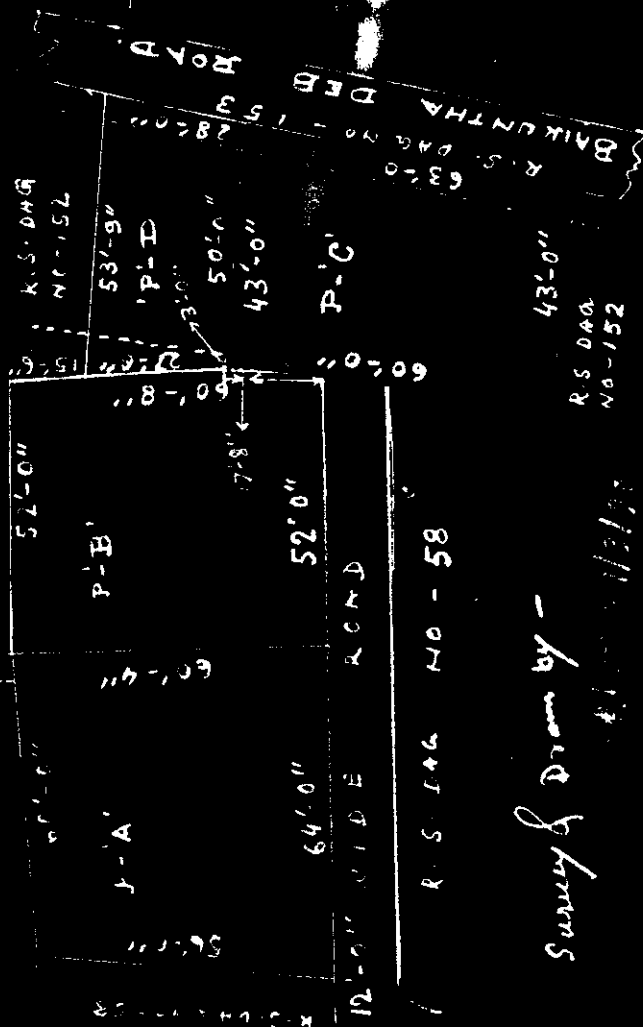 BAIKUNTHA DEB ROAD.
R.S. DAG NO - 153
28'-0"
63'-0
R.S. DAG
NO-152
53'-9"
'P'-D
50'-0"
43'-0"
P-'C'
43'-0"
R.S DAG
NO-152
15'-6"
60'-8"
60'-0"
52'-0"
P-'B'
17'-8"
52'0"
60'-4"
'A'
64'-0"
12'-0" WIDE ROAD
R.S. DAG NO - 58
Survey & Drawn by -